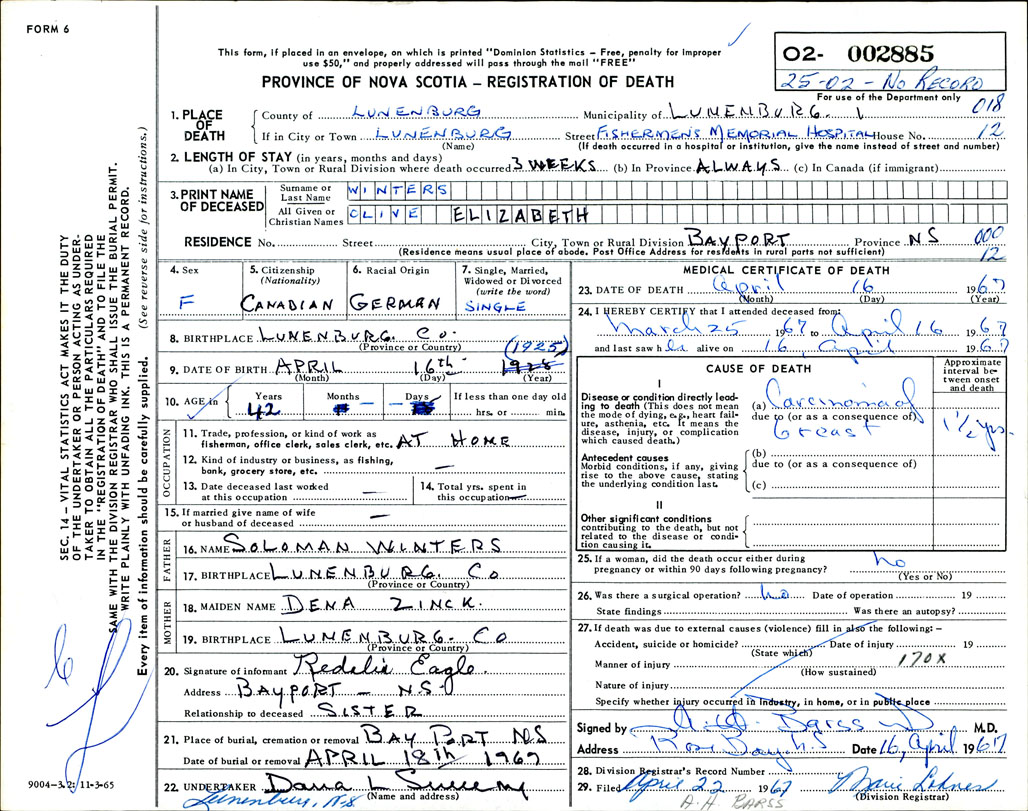 FORM 6
This form, if placed in an envelope, on which is printed "Dominion Statistics – Free, penalty for improper
use $50," and properly addressed will pass through the mail "FREE"
PROVINCE OF NOVA SCOTIA – REGISTRATION OF DEATH
02- 002885
25-02 - NO RECORD
For use of the Department only
018
12
1. PLACE OF DEATH
County of LUNENBURG Municipality of LUNENBURG.
If in City or Town LUNENBURG Street FISHERMEN'S MEMORIAL HOSPITAL House No.
(Name) (If death occurred in a hospital or institution, give the name instead of street and number)
2. LENGTH OF STAY (in years, months and days)
(a) In City, Town or Rural Division where death occurred 3 WEEKS (b) In Province ALWAYS (c) In Canada (if immigrant)
3. PRINT NAME OF DECEASED
Surname or Last Name WINTERS
All Given or Christian Names CLIVE ELIZABETH
RESIDENCE No. Street City, Town or Rural Division BAYPORT Province NS
000
12
(Residence means usual place of abode. Post Office Address for residents in rural parts not sufficient)
4. Sex F
5. Citizenship (Nationality) CANADIAN
6. Racial Origin GERMAN
7. Single, Married, Widowed or Divorced (write the word) SINGLE
8. BIRTHPLACE LUNENBURG. CO.
(Province or Country)
(1925)
9. DATE OF BIRTH APRIL 16th
(Month) (Day) (Year)
10. AGE in Years 42 Months – Days – If less than one day old hrs. or min.
OCCUPATION
11. Trade, profession, or kind of work as
fisherman, office clerk, sales clerk, etc. AT HOME
12. Kind of industry or business, as fishing,
bank, grocery store, etc. –
13. Date deceased last worked
at this occupation –
14. Total yrs. spent in
this occupation –
15. If married give name of wife
or husband of deceased –
FATHER
16. NAME SOLOMAN WINTERS
17. BIRTHPLACE LUNENBURG. CO
(Province or Country)
MOTHER
18. MAIDEN NAME DENA ZINCK.
19. BIRTHPLACE LUNENBURG. CO
(Province or Country)
20. Signature of informant Redelia Eagle.
Address BAYPORT – NS.
Relationship to deceased SISTER
21. Place of burial, cremation or removal BAY PORT NS
Date of burial or removal APRIL 18th 1967
22. UNDERTAKER Dana L
Lunenburg, N.S. (Name and address)
MEDICAL CERTIFICATE OF DEATH
23. DATE OF DEATH April 16 1967
(Month) (Day) (Year)
24. I HEREBY CERTIFY that I attended deceased from:
March 25 1967 to April 16 1967
and last saw h alive on 16, April 1967
CAUSE OF DEATH
Approximate interval between onset and death
I
Disease or condition directly leading to death (This does not mean the mode of dying, e.g., heart failure, asthenia, etc. It means the disease, injury, or complication which caused death.)
(a) Carcinoma of
due to (or as a consequence of)
breast
1½ yrs.
Antecedent causes
Morbid conditions, if any, giving rise to the above cause, stating the underlying condition last.
(b)
due to (or as a consequence of)
(c)
II
Other significant conditions
contributing to the death, but not related to the disease or condition causing it.
25. If a woman, did the death occur either during
pregnancy or within 90 days following pregnancy? no
(Yes or No)
26. Was there a surgical operation? no Date of operation 19
State findings Was there an autopsy?
27. If death was due to external causes (violence) fill in also the following: –
Accident, suicide or homicide? Date of injury 19
(State which)
Manner of injury 170X
(How sustained)
Nature of injury
Specify whether injury occurred in industry, in home, or in public place
Signed by Barss M.D.
Address Rose Bay N.S Date 16, April 1967
28. Division Registrar's Record Number
29. Filed April 22 1967
(Division Registrar)
A.H. BARSS
SEC. 14 – VITAL STATISTICS ACT MAKES IT THE DUTY
OF THE UNDERTAKER OR PERSON ACTING AS UNDER-
TAKER TO OBTAIN ALL THE PARTICULARS REQUIRED
IN THE "REGISTRATION OF DEATH" AND TO FILE THE
SAME WITH THE DIVISION REGISTRAR WHO SHALL ISSUE THE BURIAL PERMIT.
WRITE PLAINLY WITH UNFADING INK. THIS IS A PERMANENT RECORD.
Every item of information should be carefully supplied. (See reverse side for instructions.)
9004-3.2: 11-3-65